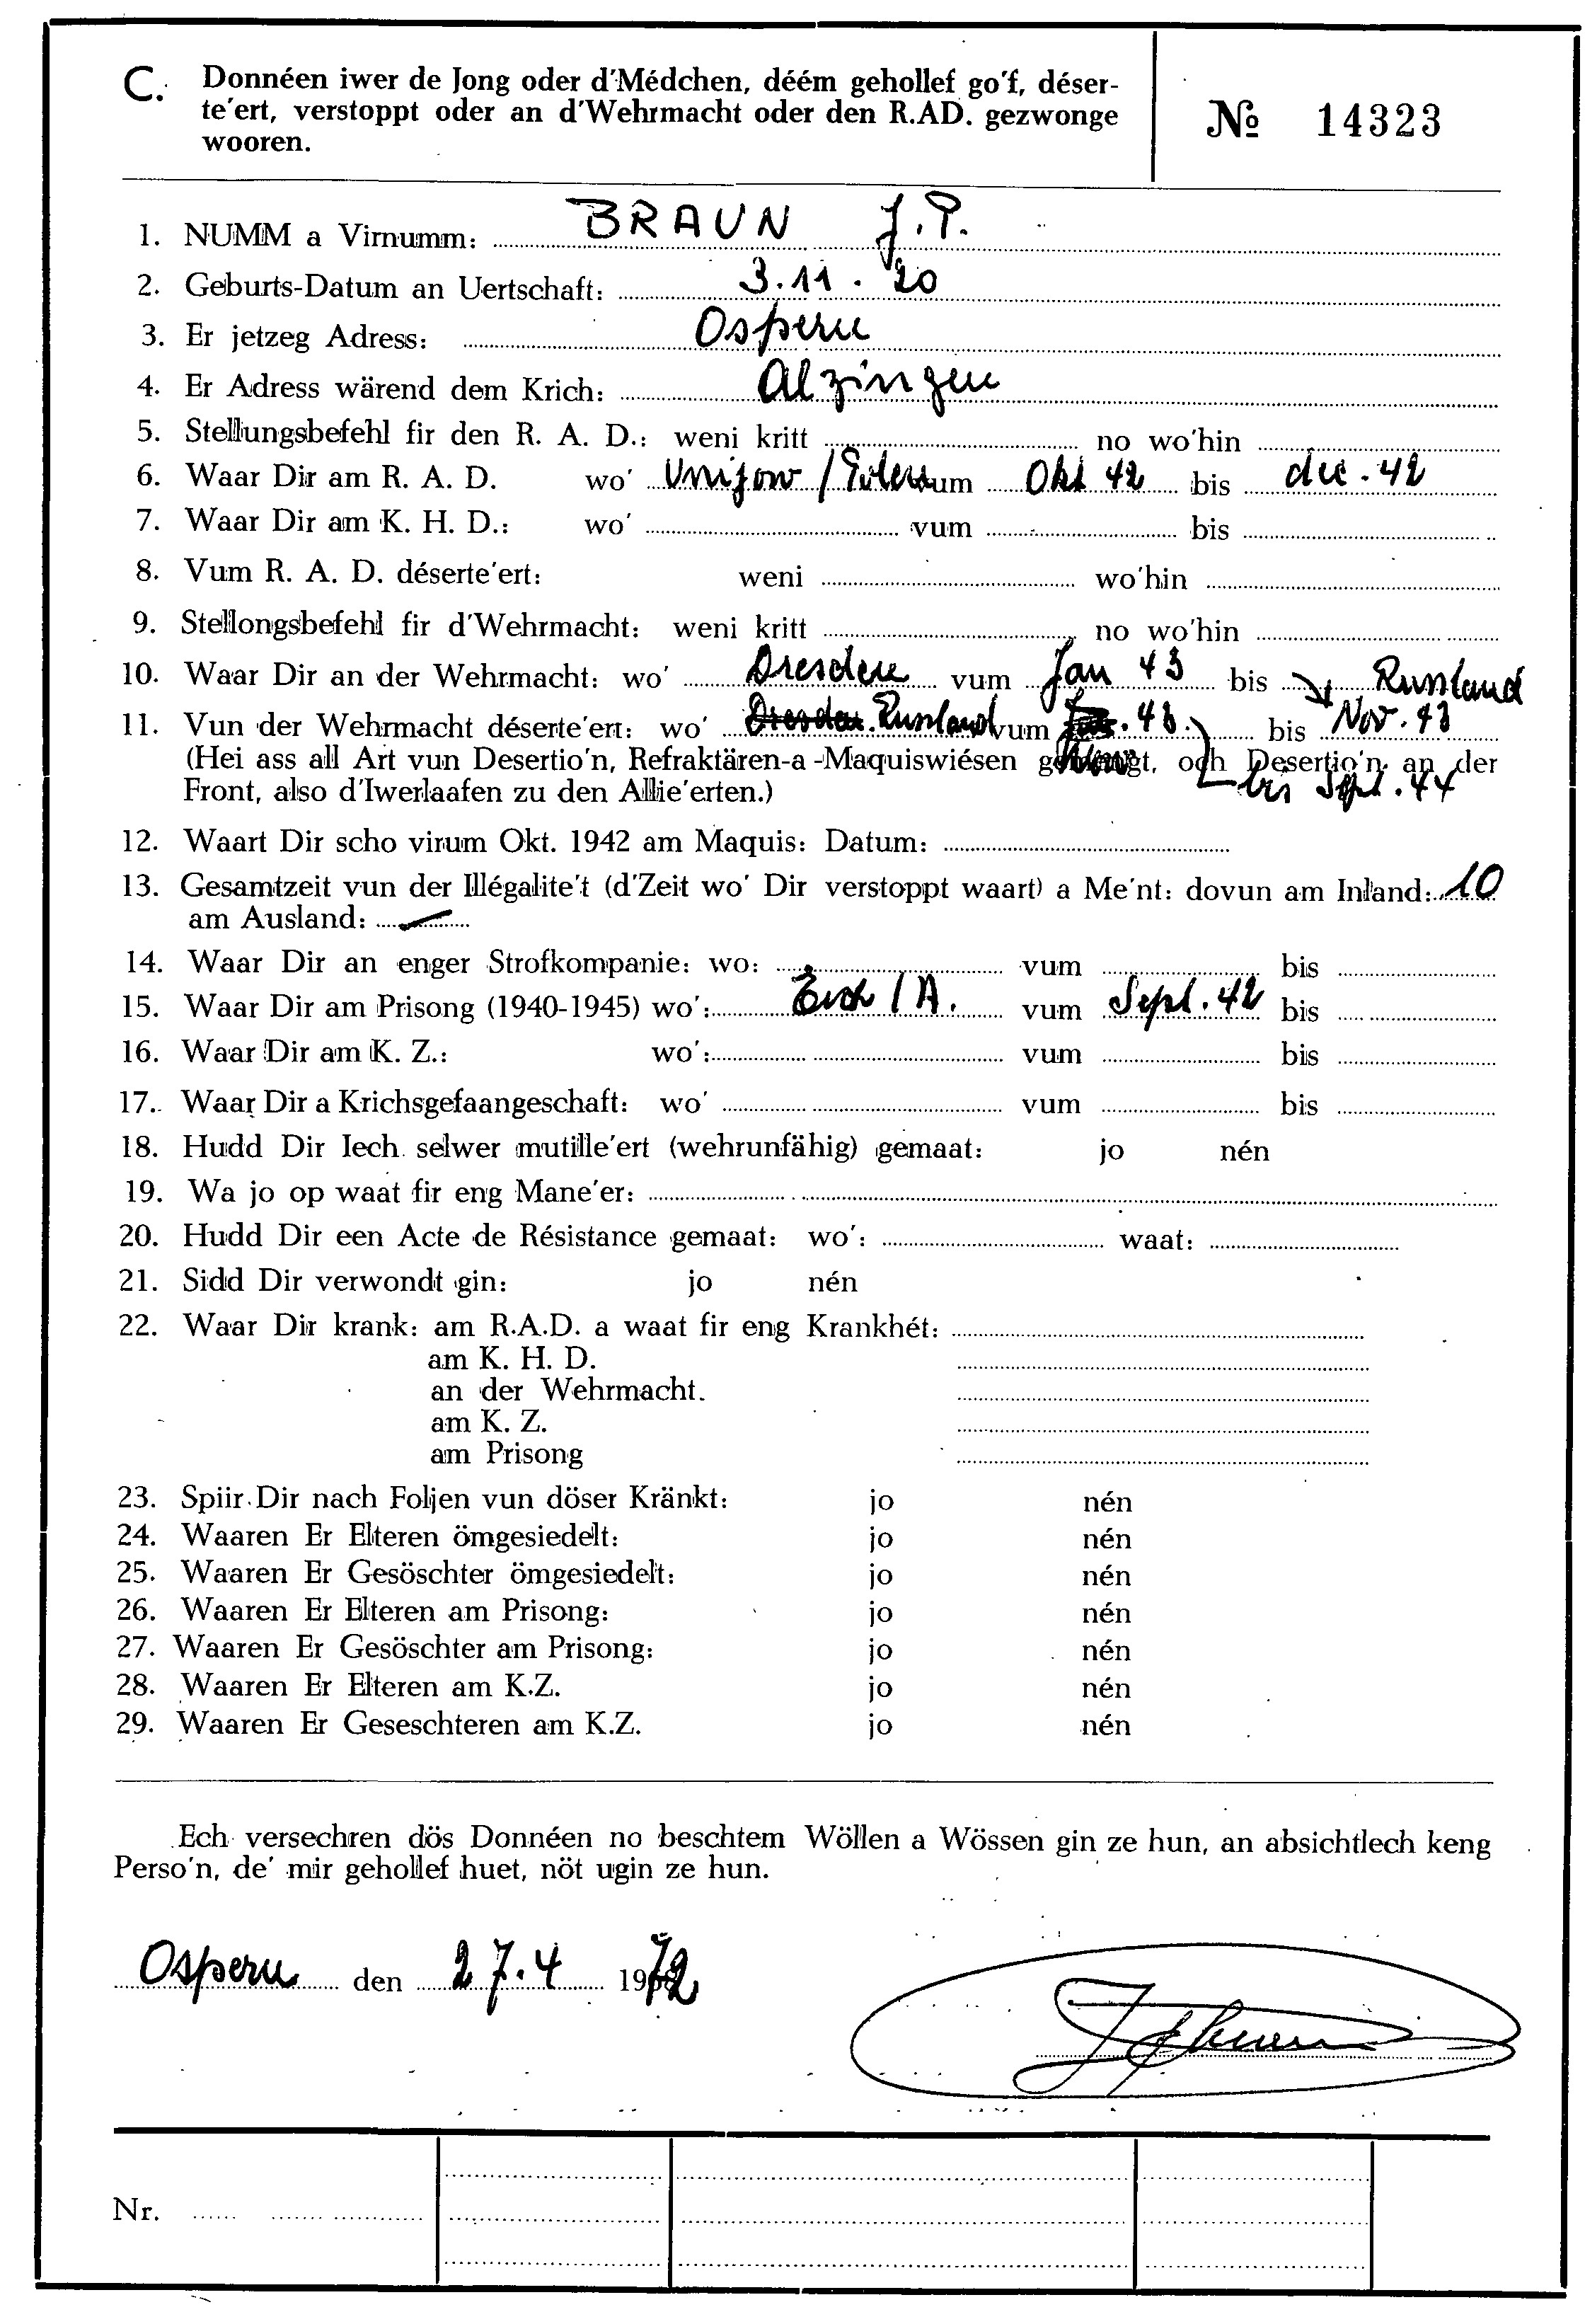 C. Donnéen iwer de Jong oder d'Médchen, déém gehollef go'f, déser-
te'ert, verstoppt oder an d'Wehrmacht oder den R.AD. gezwonge
wooren.
№ 14323
1. NUMM a Virnumm: BRAUN J.P.
2. Geburts-Datum an Uertschaft: 3.11.20
3. Er jetzeg Adress: Ospern
4. Er Adress wärend dem Krich: Alzingen
5. Stellungsbefehl fir den R. A. D.: weni kritt no wo'hin
6. Waar Dir am R. A. D. wo' vum Okt 42 bis dec. 42
7. Waar Dir am K. H. D.: wo' vum bis
8. Vum R. A. D. déserte'ert: weni wo'hin
9. Stellongsbefehl fir d'Wehrmacht: weni kritt no wo'hin
10. Waar Dir an der Wehrmacht: wo' Dresden vum Jan 43 bis Russland
11. Vun der Wehrmacht déserte'ert: wo' Dresden Russland vum 43. bis Nov. 43
(Hei ass all Art vun Desertio'n, Refraktären-a-Maquiswiésen och Desertio'n an der
Front, also d'Iwerlaafen zu den Allie'erten.) bis Sept. 44
12. Waart Dir scho virum Okt. 1942 am Maquis: Datum:
13. Gesamtzeit vun der Illégalite't (d'Zeit wo' Dir verstoppt waart) a Me'nt: dovun am Inland: 10
am Ausland: —
14. Waar Dir an enger Strofkompanie: wo: vum bis
15. Waar Dir am Prisong (1940-1945) wo': Esch / A. vum Sept. 42 bis
16. Waar Dir am K. Z.: wo': vum bis
17. Waar Dir a Krichsgefaangeschaft: wo' vum bis
18. Hudd Dir Iech selwer mutille'ert (wehrunfähig) gemaat: jo nén
19. Wa jo op waat fir eng Mane'er:
20. Hudd Dir een Acte de Résistance gemaat: wo': waat:
21. Sidd Dir verwondt gin: jo nén
22. Waar Dir krank: am R.A.D. a waat fir eng Krankhét:
am K. H. D.
an der Wehrmacht.
am K. Z.
am Prisong
23. Spiir Dir nach Foljen vun döser Kränkt: jo nén
24. Waaren Er Elteren ömgesiedelt: jo nén
25. Waaren Er Gesöschter ömgesiedelt: jo nén
26. Waaren Er Elteren am Prisong: jo nén
27. Waaren Er Gesöschter am Prisong: jo nén
28. Waaren Er Elteren am K.Z. jo nén
29. Waaren Er Geseschteren am K.Z. jo nén
Ech versechren dös Donnéen no beschtem Wöllen a Wössen gin ze hun, an absichtlech keng
Perso'n, de' mir gehollef huet, nöt ugin ze hun.
Ospern den 27.4 1972
Nr.